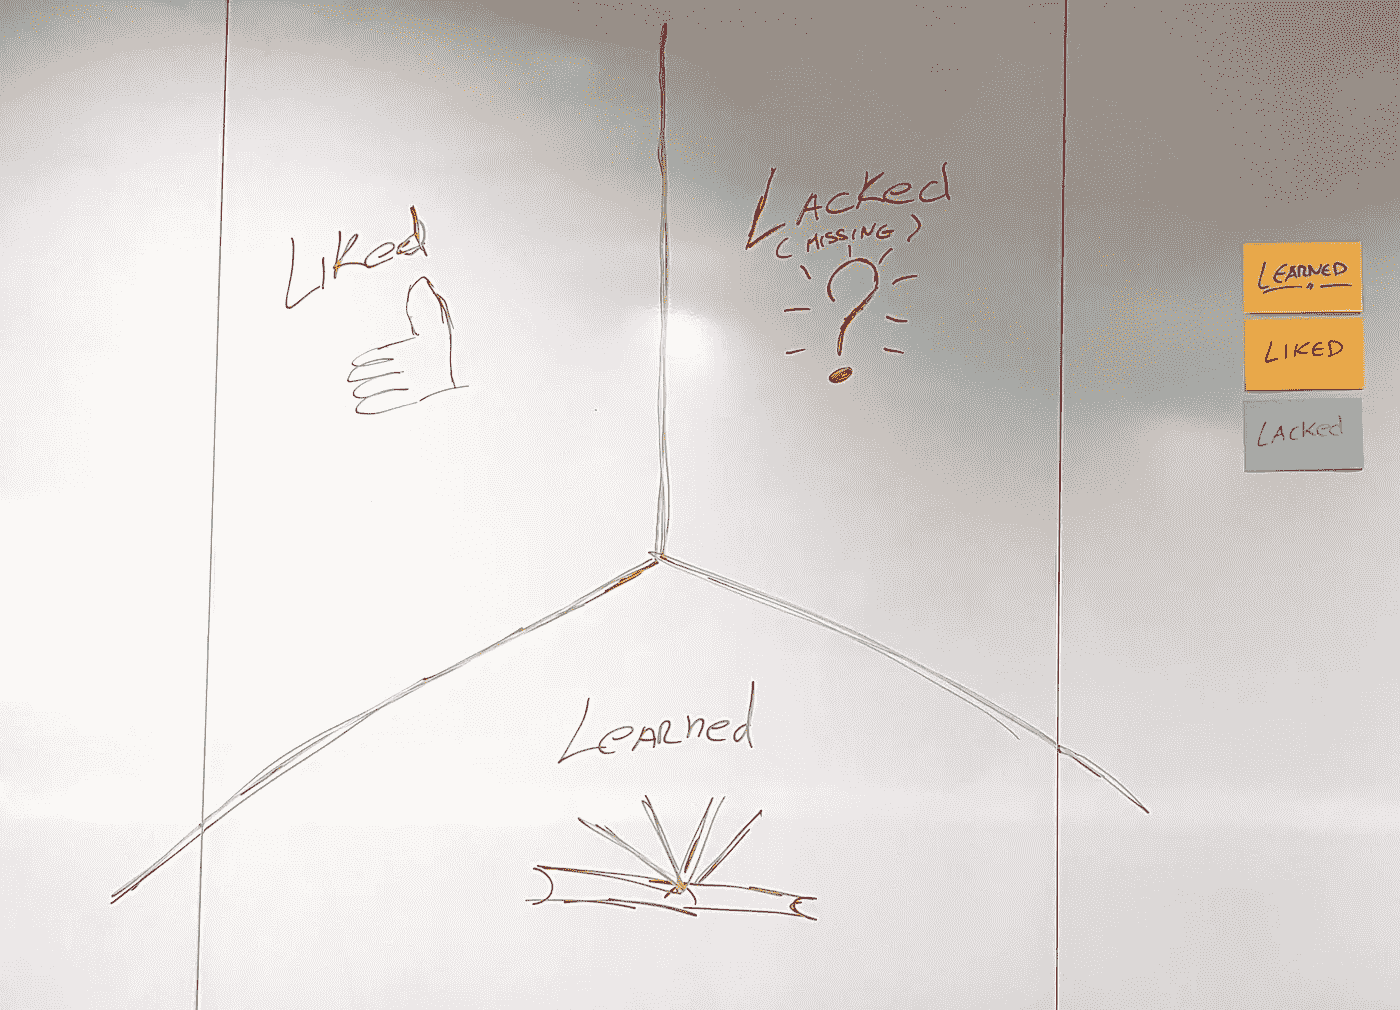 Liked
Lacked
(MISSING)
Learned
LEARNED
LIKED
LACKed